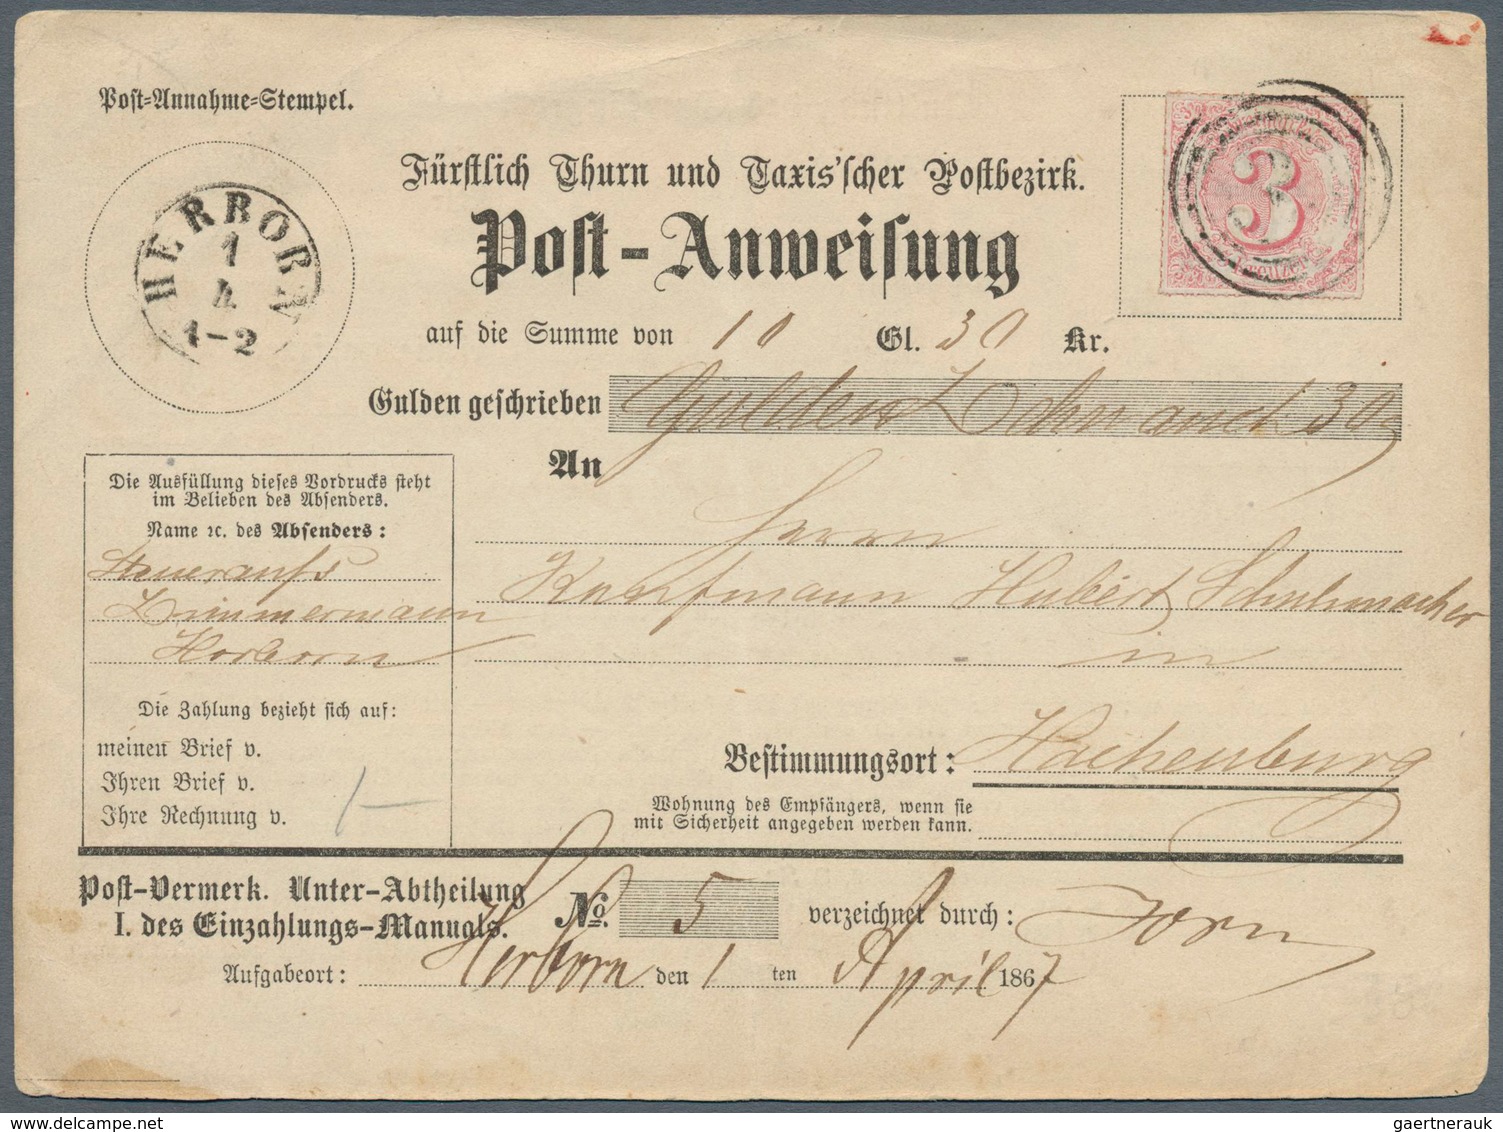 Post-Annahme-Stempel.
HERBORN
1
4
1-2
Fürstlich Thurn und Taxis'scher Postbezirk.
Post-Anweisung
3
Kreuzer
auf die Summe von 10 Gl. 30 Kr.
Gulden geschrieben Gulden Zehn und 30
An
Herrn
Kaufmann Hubert Schuhmacher
in
Die Ausfüllung dieses Vordrucks steht
im Belieben des Absenders.
Name ꝛc. des Absenders:
Zimmermann
Herborn
Die Zahlung bezieht sich auf:
meinen Brief v.
Ihren Brief v.
Ihre Rechnung v.
Bestimmungsort: Hachenburg
Wohnung des Empfängers, wenn sie
mit Sicherheit angegeben werden kann.
Post-Vermerk. Unter-Abtheilung
I. des Einzahlungs-Manuals. No. 5 verzeichnet durch: Jorn
Aufgabeort: Herborn den 1 ten April 1867
gaertnerauk